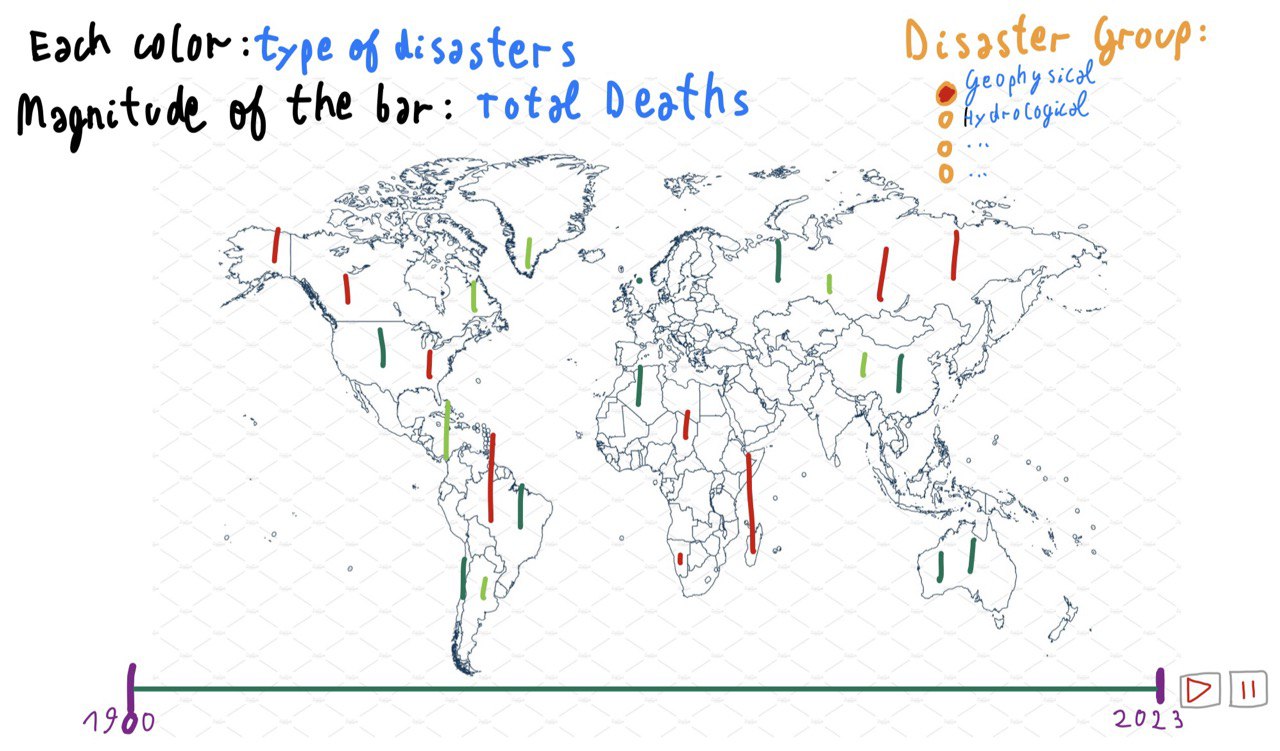 Each color: type of disasters
Magnitude of the bar: Total Deaths
Disaster Group:
Geophysical
Hydrological
...
...
1900
2023